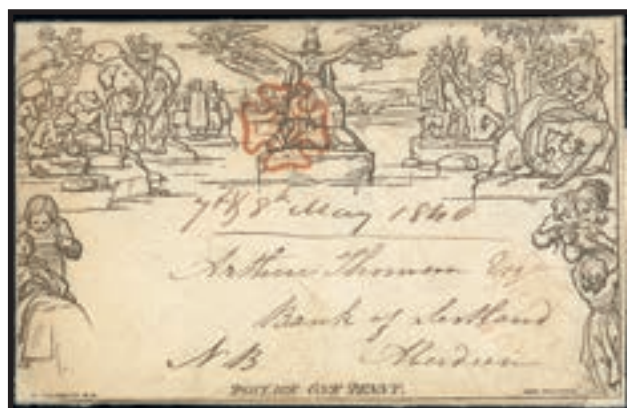 7th & 8th May 1840
Arthur Thomson Esqr
Bank of Scotland
NB Aberdeen
POSTAGE ONE PENNY.